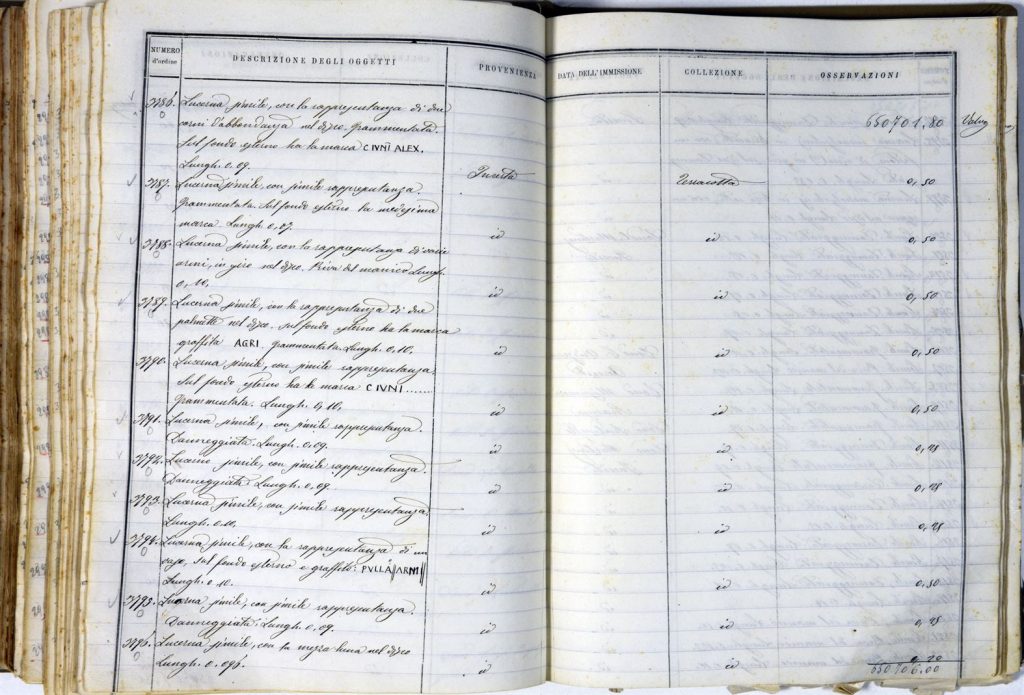 NUMERO d'ordine
DESCRIZIONE DEGLI OGGETTI
PROVENIENZA
DATA DELL'IMMISSIONE
COLLEZIONE
OSSERVAZIONI
650701.80
3786. Lucerna simile, con la rappresentanza di due
corni d'abbondanza nel disco. Frammentata.
Sul fondo esterno ha la marca CIVNI ALEX.
Lungh. 0,09.
Incerta Terracotta 0,50
3787. Lucerna simile, con simile rappresentanza
Frammentata. Sul fondo esterno la medesima
marca. Lungh. 0,09.
id id 0,50
3788. Lucerna simile, con la rappresentanza di varie
armi, in giro nel disco. Priva del manico. Lungh.
0,10.
id id 0,50
3789. Lucerna simile, con la rappresentanza di due
palmette nel disco. Sul fondo esterno ha la marca
graffita AGRI. Frammentata. Lungh. 0,10.
id id 0,50
3790. Lucerna simile, con simile rappresentanza.
Sul fondo esterno ha la marca CIVNI.......
Frammentata. Lungh. 0,10.
id id 0,50
3791. Lucerna simile, con simile rappresentanza.
Danneggiata. Lungh. 0,09.
id id 0,28
3792. Lucerna simile, con simile rappresentanza.
Danneggiata. Lungh. 0,09.
id id 0,28
3793. Lucerna simile, con simile rappresentanza.
Lungh. 0,10.
id id 0,28
3794. Lucerna simile, con la rappresentanza di un
vaso, sul fondo esterno è graffito: PVLLA//ARNI//
Lungh. 0,10.
id id 0,50
3795. Lucerna simile, con simile rappresentanza.
Danneggiata. Lungh. 0,09.
id id 0,28
3796. Lucerna simile, con la mezza luna nel disco
Lungh. 0,095.
id id 0,20
650706.00